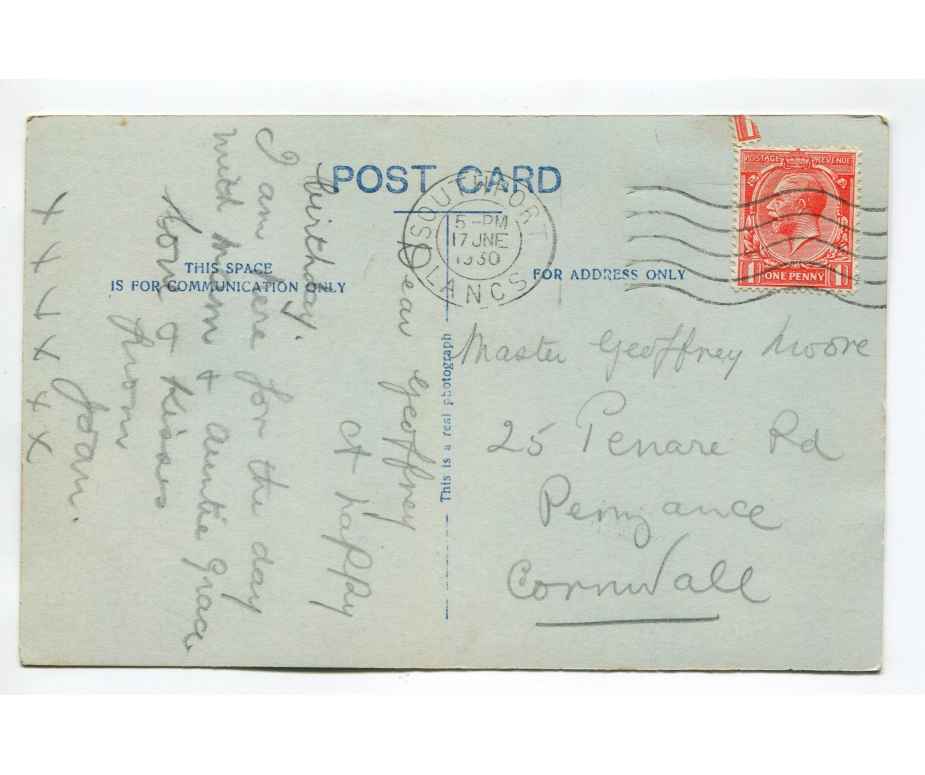 POST CARD
THIS SPACE
IS FOR COMMUNICATION ONLY
FOR ADDRESS ONLY
This is a real photograph
SOUTHPORT
5-PM
17 JNE
1930
LANCS
POSTAGE REVENUE
1 ONE PENNY 1
Dear Geoffrey
A happy
birthday.
I am here for the day
with Mam + Auntie Grace
Love & Kisses
from
Joan.
x x x x x x
Master Geoffrey Moore
25 Penare Rd
Penzance
Cornwall